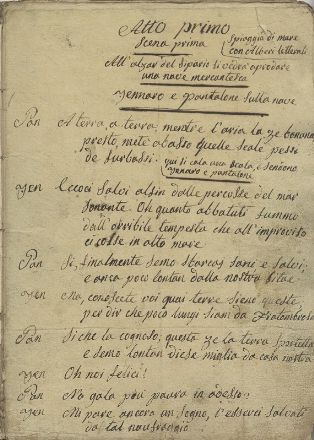 Atto primo
Scena prima
Spiaggia di mare
con Alberi laterali
All'alzar del sipario si vedrà aprodare
una nave mercantesca
Jennaro e Pantalone sulla nave
Pan A terra, a terra, mentre l'aria la ze bonona
presto, mete abasso quelle scale pesse
de surbassi. qui si cala una scala, e scendono
Jennaro e pantalone
Jen Eccoci salvi alfin dalle percosse del mar
sonante. Oh quanto abbatuti summo
dall'orribile tempesta che all'improviso
ci colse in alto mare
Pan Si, finalmente semo sbarcai, sani e salvi;
e anca poco lontan dalla nostra
Jen Ma, conoscete voi quai terre sieno queste,
per dir che poco lungi siam da
Pan Siche la cognoso; questa ze la terra
e semo lontan diese miglia da casa nostra
Jen Oh noi felici!
Pan No gala più paura in adesso?
Jen Mi pare ancora un sogno, l'esserci salvati
da tal naufraggio!